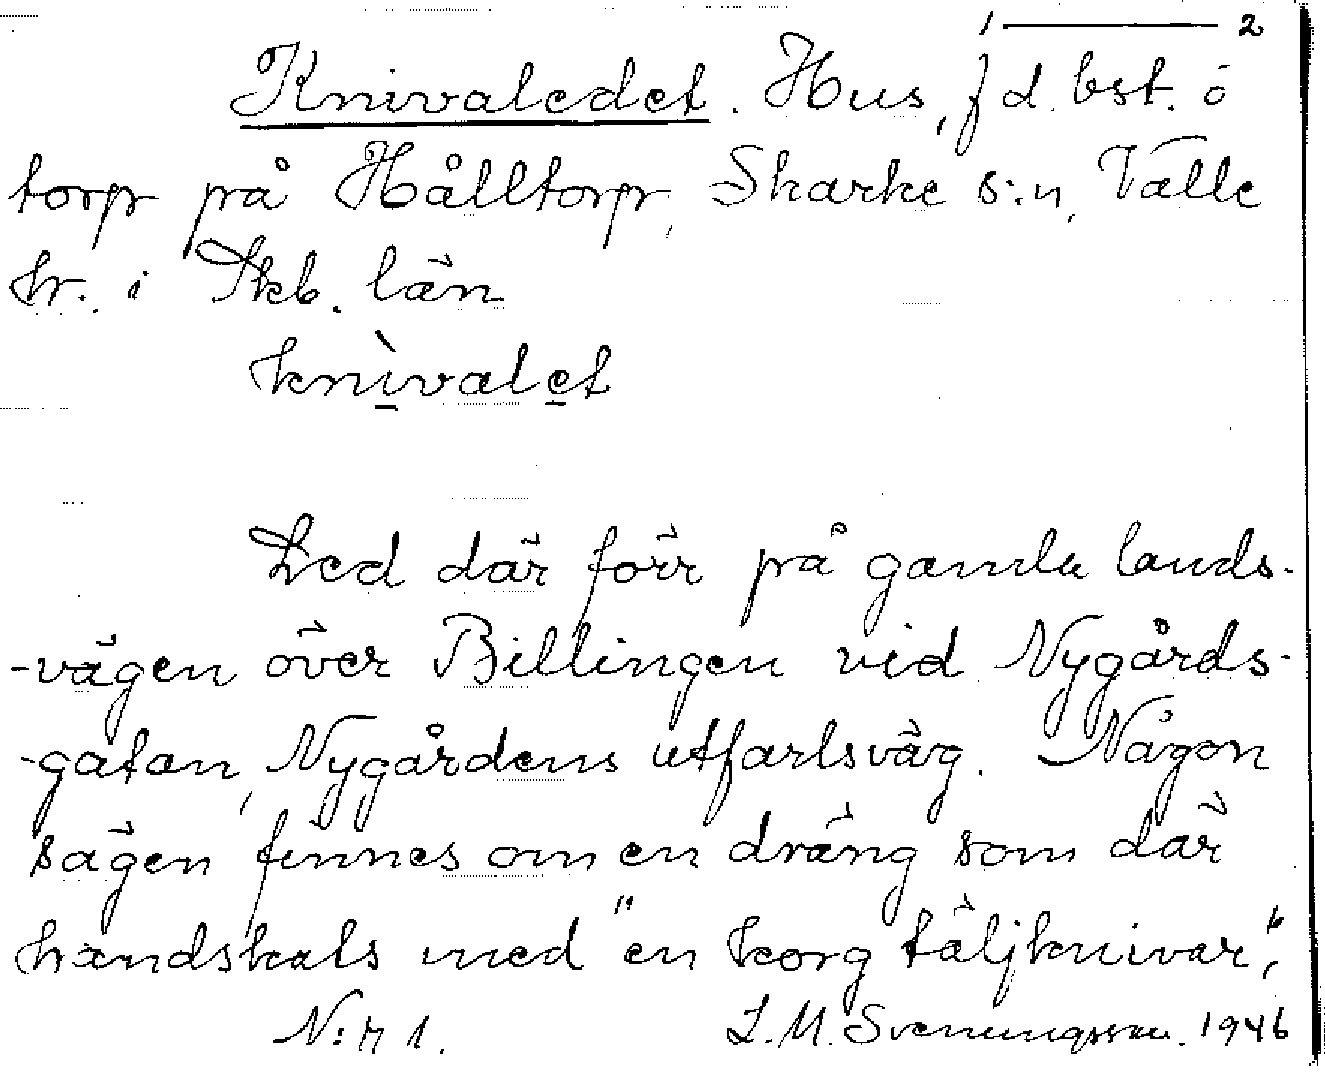 1 ——— 2
Knivaledet. Hus, f d. bst. o
torp på Hålltorp, Skarke s:n, Valle
hr. i Skb. län
knìvalet
Led där förr på gamla lands-
-vägen över Billingen vid Nygårds-
-gatan, Nygårdens utfartsväg. Någon
sägen finnes om en dräng som där
handskats med "en korg täljknivar".
N:r 1. L. M. Svenungsson. 1946